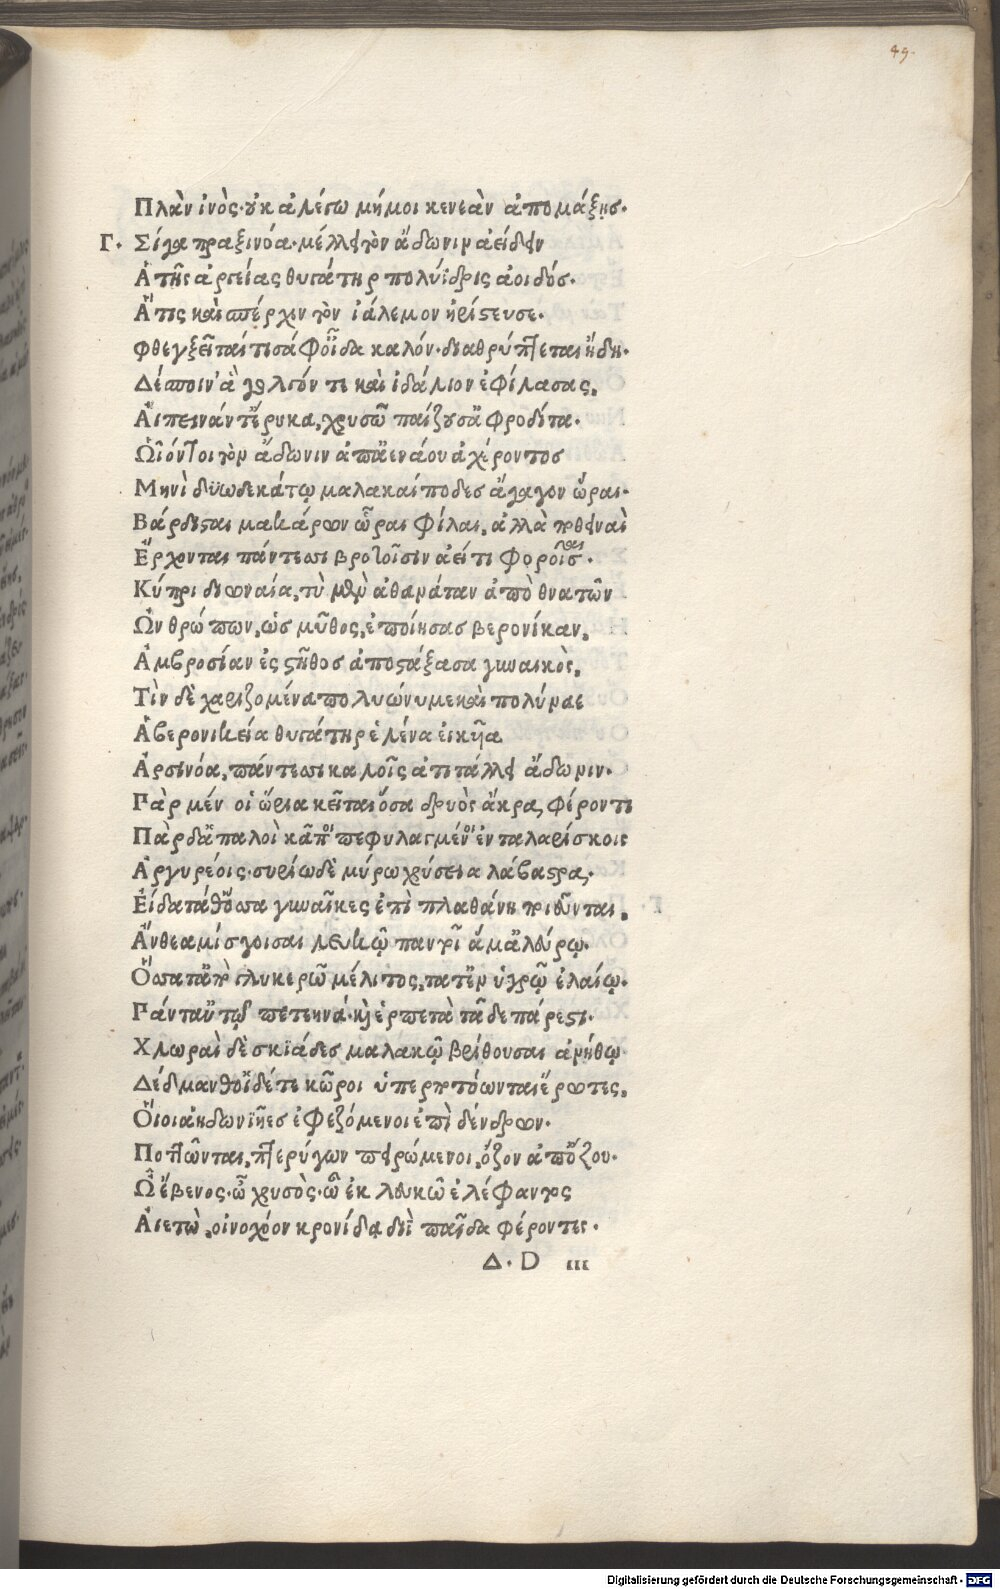 49.
Πλὰν ἑνὸς· οὐκ ἀλέγω μή μοι κενεὰν ἀπομάξης·
Γ· Σίγα πραξινόα· μέλλει τὸν ἄδωνιν ἀείδειν
Ἁ τῆς ἀργείας θυγάτηρ πολύϊδρις ἀοιδός·
Ἅτις καὶ πέρχιν τὸν ἰάλεμον ἠρίστευσε·
Φθεγξεῖται τι σάφ οἶδα καλόν· διαθρύπτεται ἤδη·
Δέσποιν' ἃ γολγόν τε καὶ ἰδάλιον ἐφίλασας,
Αἰπεινάν τ' ἔρυκα, χρυσῶ παίζουσ' ἀφροδίτα·
Ὡΐόν τοι τὸν ἄδωνιν ἀπ' ἀενάου ἀχέροντος
Μηνὶ δυωδεκάτῳ μαλακαίποδες ἄγαγον ὧραι·
Βάρδισται μακάρων ὧραι φίλαι, ἀλλὰ ποθειναὶ
Ἔρχονται πάντεσσι βροτοῖσιν ἀεί τι φοροῖσαι·
Κύπρι διωναία, τὺ μὲν ἀθανάταν ἀπὸ θνατῶν
Ὡνθρώπων, ὡς μῦθος, ἐποίησας βερονίκαν,
Ἀμβροσίαν ἐς στῆθος ἀποστάξασα γυναικός,
Τὶν δὲ χαριζομένα πολυώνυμε καὶ πολύναε
Ἁ βερονικεία θυγάτηρ ἑλένα ἐικυῖα
Ἀρσινόα, πάντεσσι καλοῖς ἀτιτάλλει ἄδωνιν·
Πὰρ μέν οἱ ὥρια κεῖται ὅσα δρυὸς ἄκρα φέροντι
Πὰρ δ' ἁπαλοὶ κᾶποι πεφυλαγμένοι ἐν ταλαρίσκοις
Ἀργυρέοις· συρίω δὲ μύρω χρύσει' ἀλάβαστρα·
Εἴδατά θ' ὅσσα γυναῖκες ἐπὶ πλαθάνη πονεῦνται,
Ἄνθεα μίσγοισαι λευκῷ παντοῖ' ἅμ' ἀλεύρῳ·
Ὅσσα τ' ἀπὸ γλυκερῶ μέλιτος, τά τ' ἐν ὑγρῷ ἐλαίῳ·
Πάντ' αὐτῷ πετεηνά· καὶ ἑρπετὰ τᾶδε πάρεστι·
Χλωραὶ δὲ σκϊάδες μαλακῷ βρίθουσαι ἀνήθῳ
Δέδμανθ' οἳ δέ τε κῶροι ὑπερποτόωνται ἔρωτες,
Οἷοι ἀηδωνϊῆες ἐφεζόμενοι ἐπὶ δένδρων·
Ποτῶνται, πτερύγων πειρώμενοι, ὄζον ἀπ' ὄζου·
Ὢ ἔβενος· ὢ χρυσὸς· ὢ ἐκ λευκῶ ἐλέφαντος
Αἰετὼ, οἰνοχόον κρονίδᾳ διῒ παῖδα φέροντες·
Δ· D iii
Digitalisierung gefördert durch die Deutsche Forschungsgemeinschaft - DFG